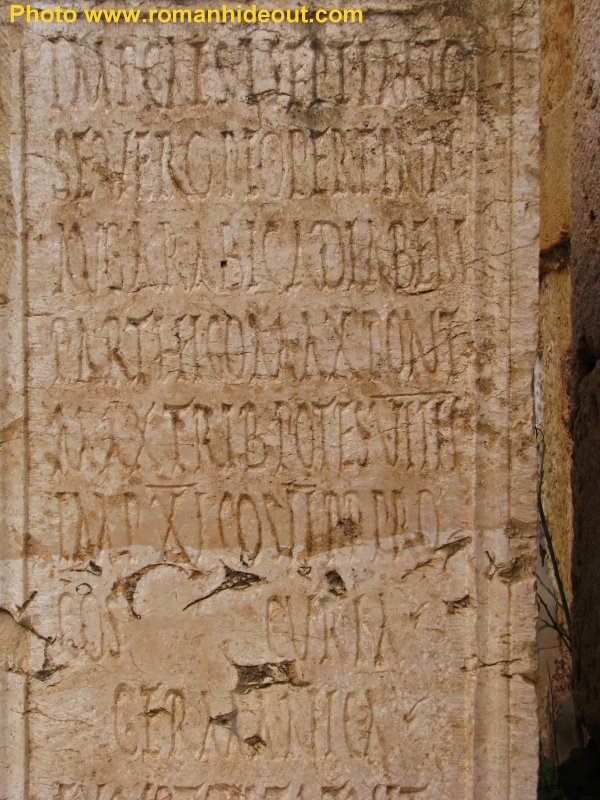 Photo www.romanhideout.com
IMP CAES L SEPTIMIO
SEVERO PIO PERTINAC
AVG ARABIC ADIABENI
PARTHICO MAX PONT
MAX TRIB POTES VIIII
IMP XI COS II P P PRO
COS CVRIA
GERMANICA